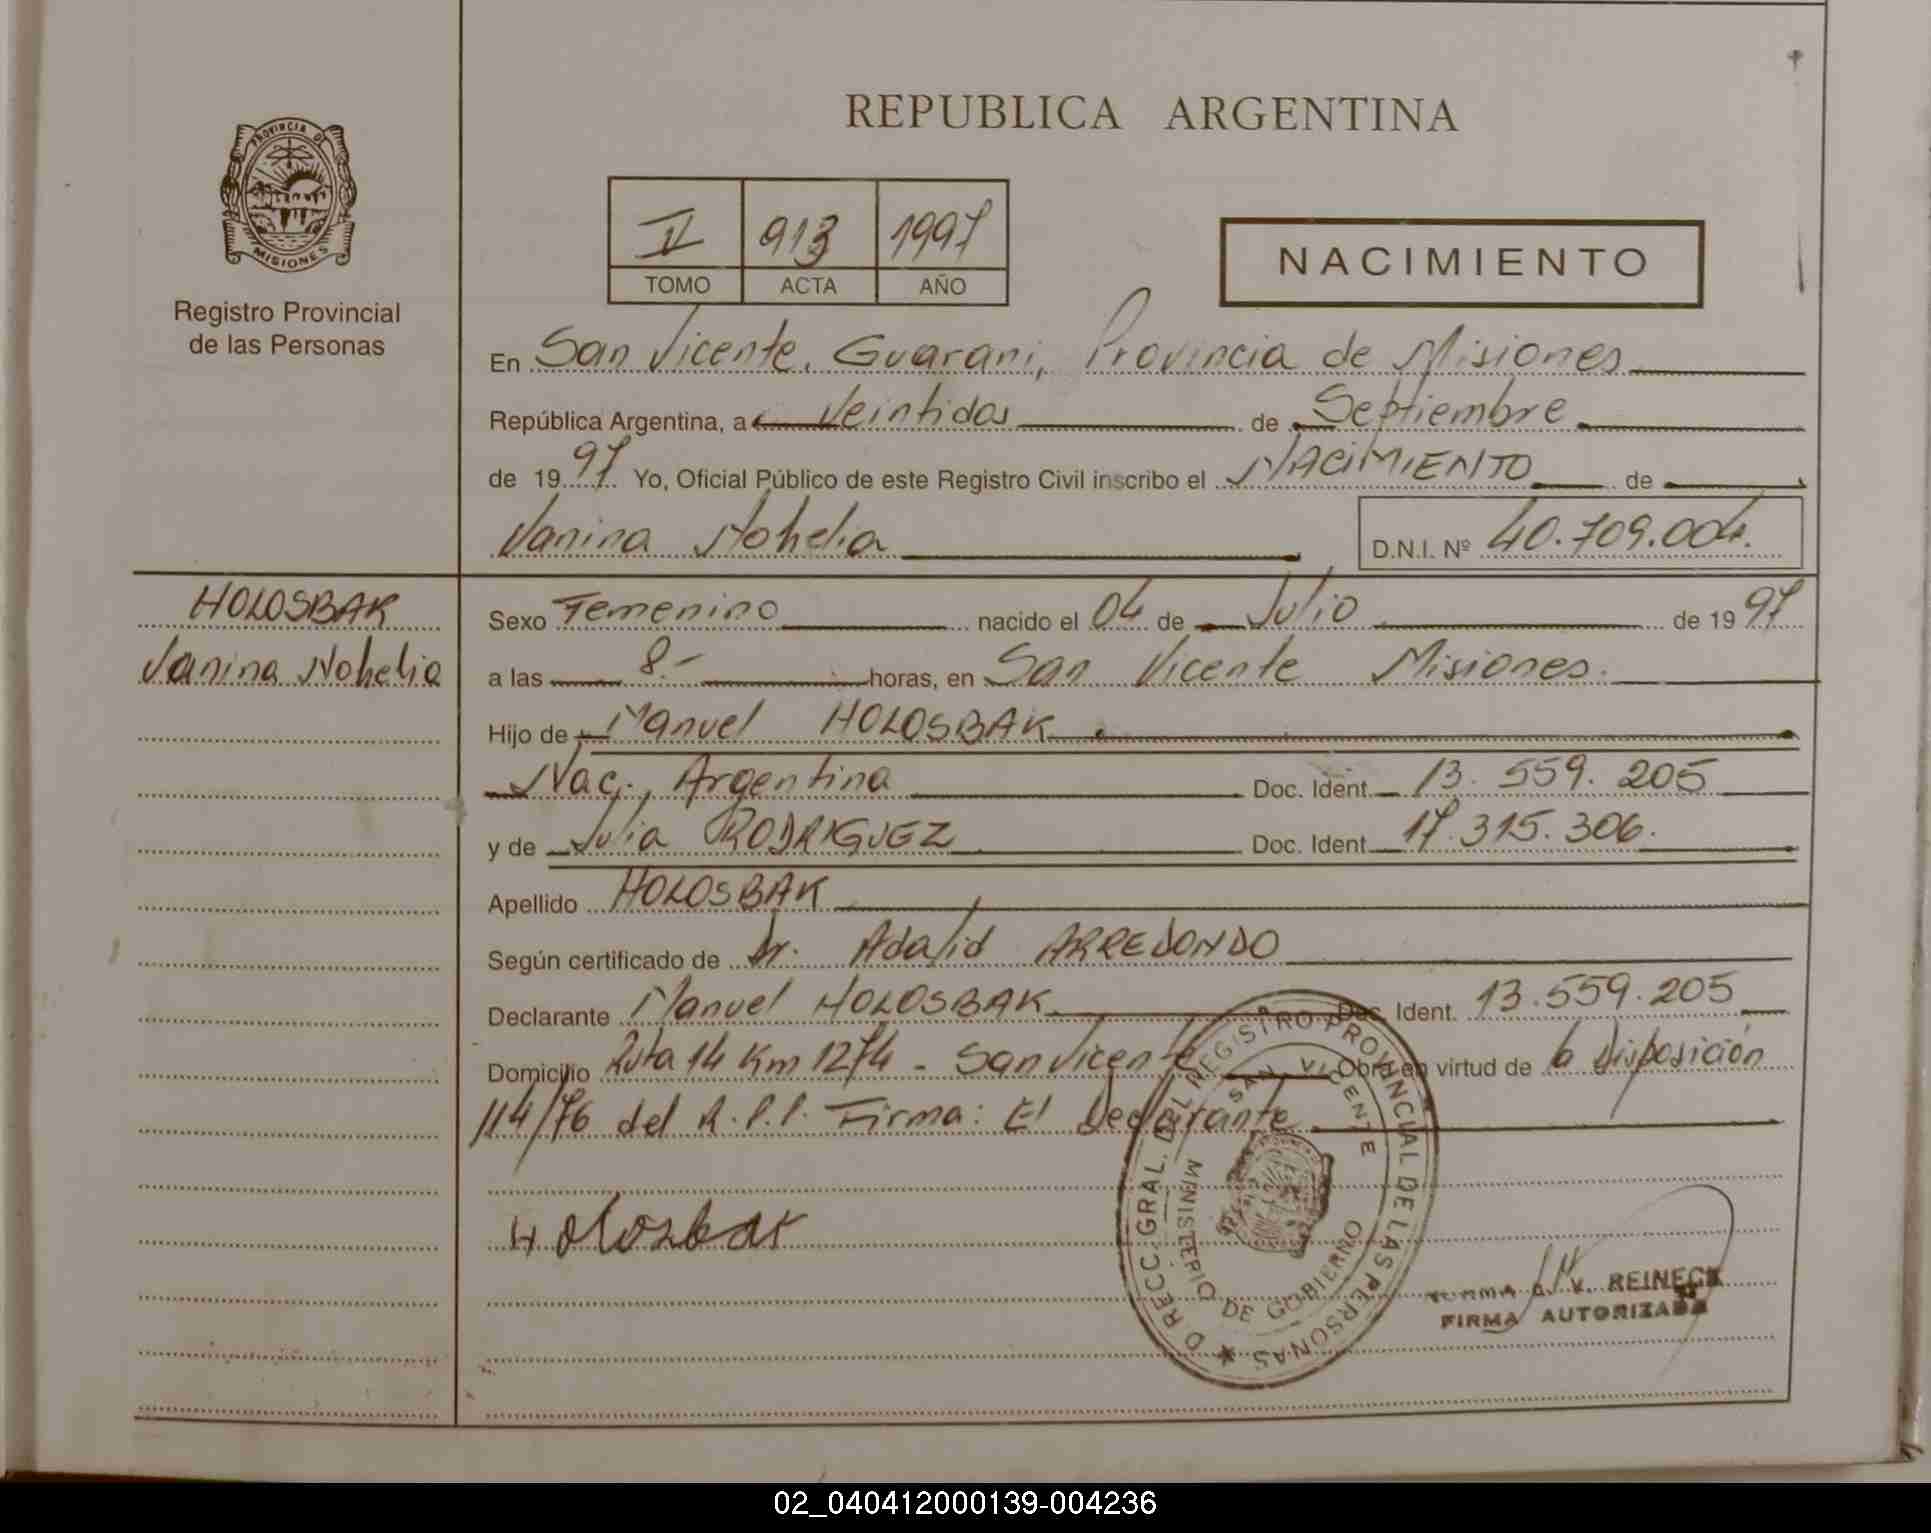 REPUBLICA ARGENTINA
PROVINCIA DE
MISIONES
Registro Provincial
de las Personas
II 913 1997
TOMO ACTA AÑO
NACIMIENTO
En San Vicente, Guarani, Provincia de Misiones
República Argentina, a Veintidos de Septiembre
de 1997 Yo, Oficial Público de este Registro Civil inscribo el NACIMIENTO de
Vanina Nohelia D.N.I. Nº 40.709.004.
HOLOSBAK
Vanina Nohelia
Sexo Femenino nacido el 04 de Julio de 1997
a las 8.- horas, en San Vicente Misiones.
Hijo de Manuel HOLOSBAK
Nac. Argentina Doc. Ident. 13.559.205
y de Julia RODRIGUEZ Doc. Ident. 17.315.306.
Apellido HOLOSBAK
Según certificado de Dr. Adalid ARREDONDO
Declarante Manuel HOLOSBAK Doc. Ident. 13.559.205
Domicilio Ruta 14 Km 1274 - San Vicente Obra en virtud de la Disposición
114/76 del R.P.P. Firma: El Declarante
Holosbak
DIRECC. GRAL. DEL REGISTRO PROVINCIAL DE LAS PERSONAS
SAN VICENTE
MINISTERIO DE GOBIERNO
V. REINECK
FIRMA AUTORIZADA
02_040412000139-004236